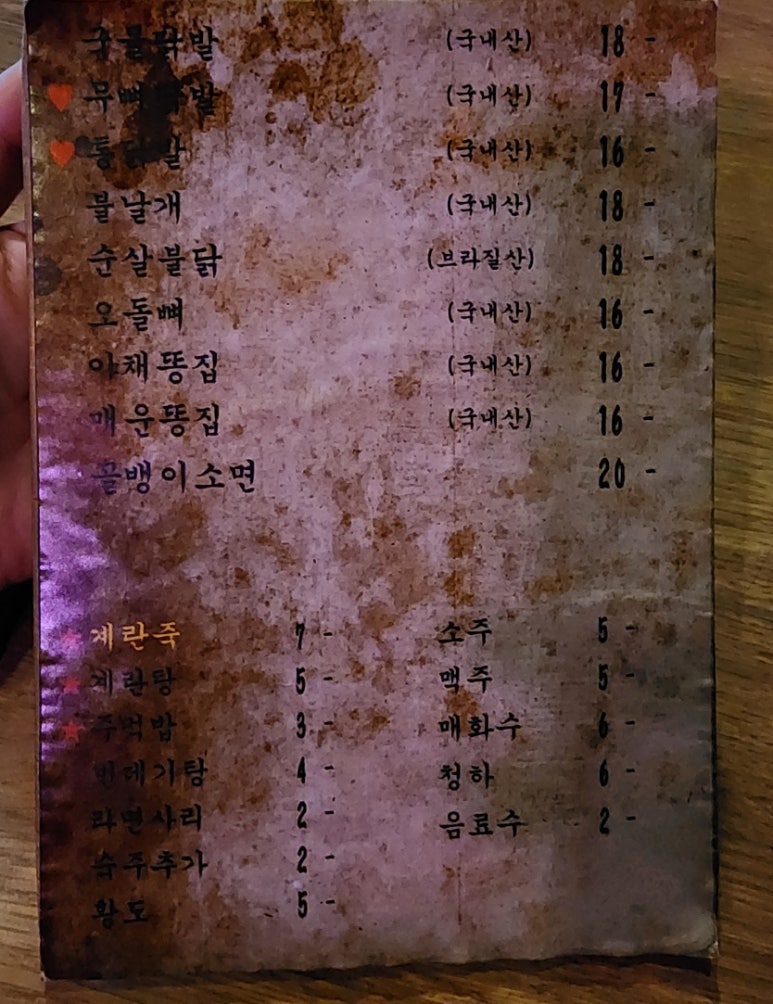 국물닭발 (국내산) 18 -
♥ 무뼈닭발 (국내산) 17 -
♥ 통닭발 (국내산) 16 -
불날개 (국내산) 18 -
순살불닭 (브라질산) 18 -
오돌뼈 (국내산) 16 -
야채똥집 (국내산) 16 -
매운똥집 (국내산) 16 -
골뱅이소면 20 -
★ 계란죽 7 -
★ 계란탕 5 -
★ 주먹밥 3 -
번데기탕 4 -
라면사리 2 -
숙주추가 2 -
황도 5 -
소주 5 -
맥주 5 -
매화수 6 -
청하 6 -
음료수 2 -